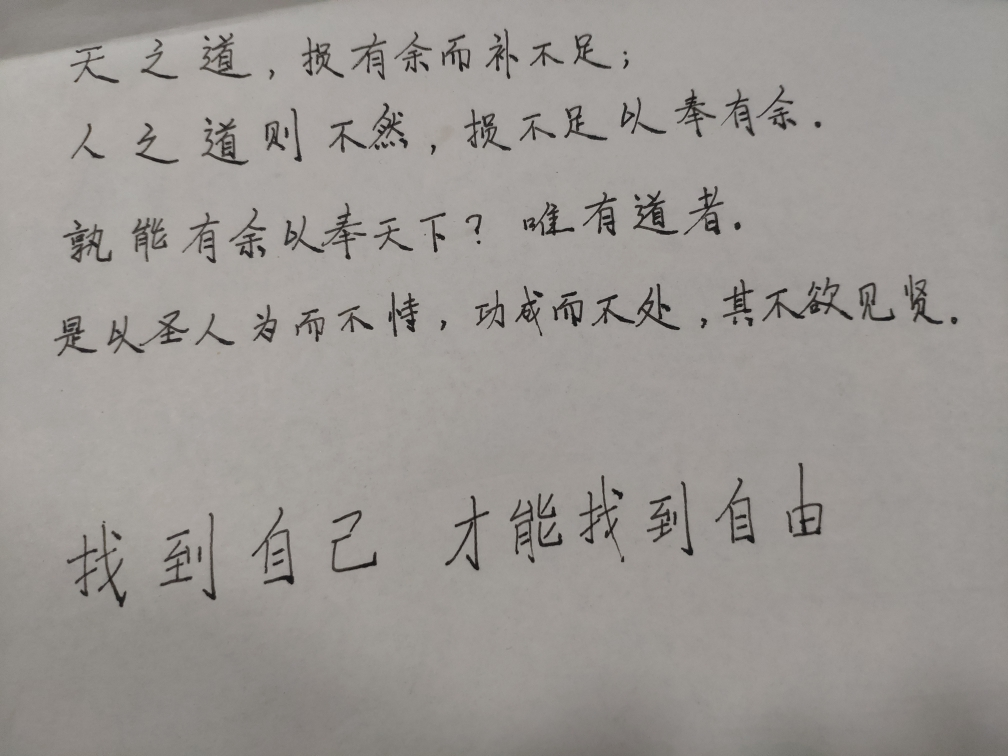 天之道，损有余而补不足；
人之道则不然，损不足以奉有余．
孰能有余以奉天下？唯有道者。
是以圣人为而不恃，功成而不处，其不欲见贤。
找到自己 才能找到自由